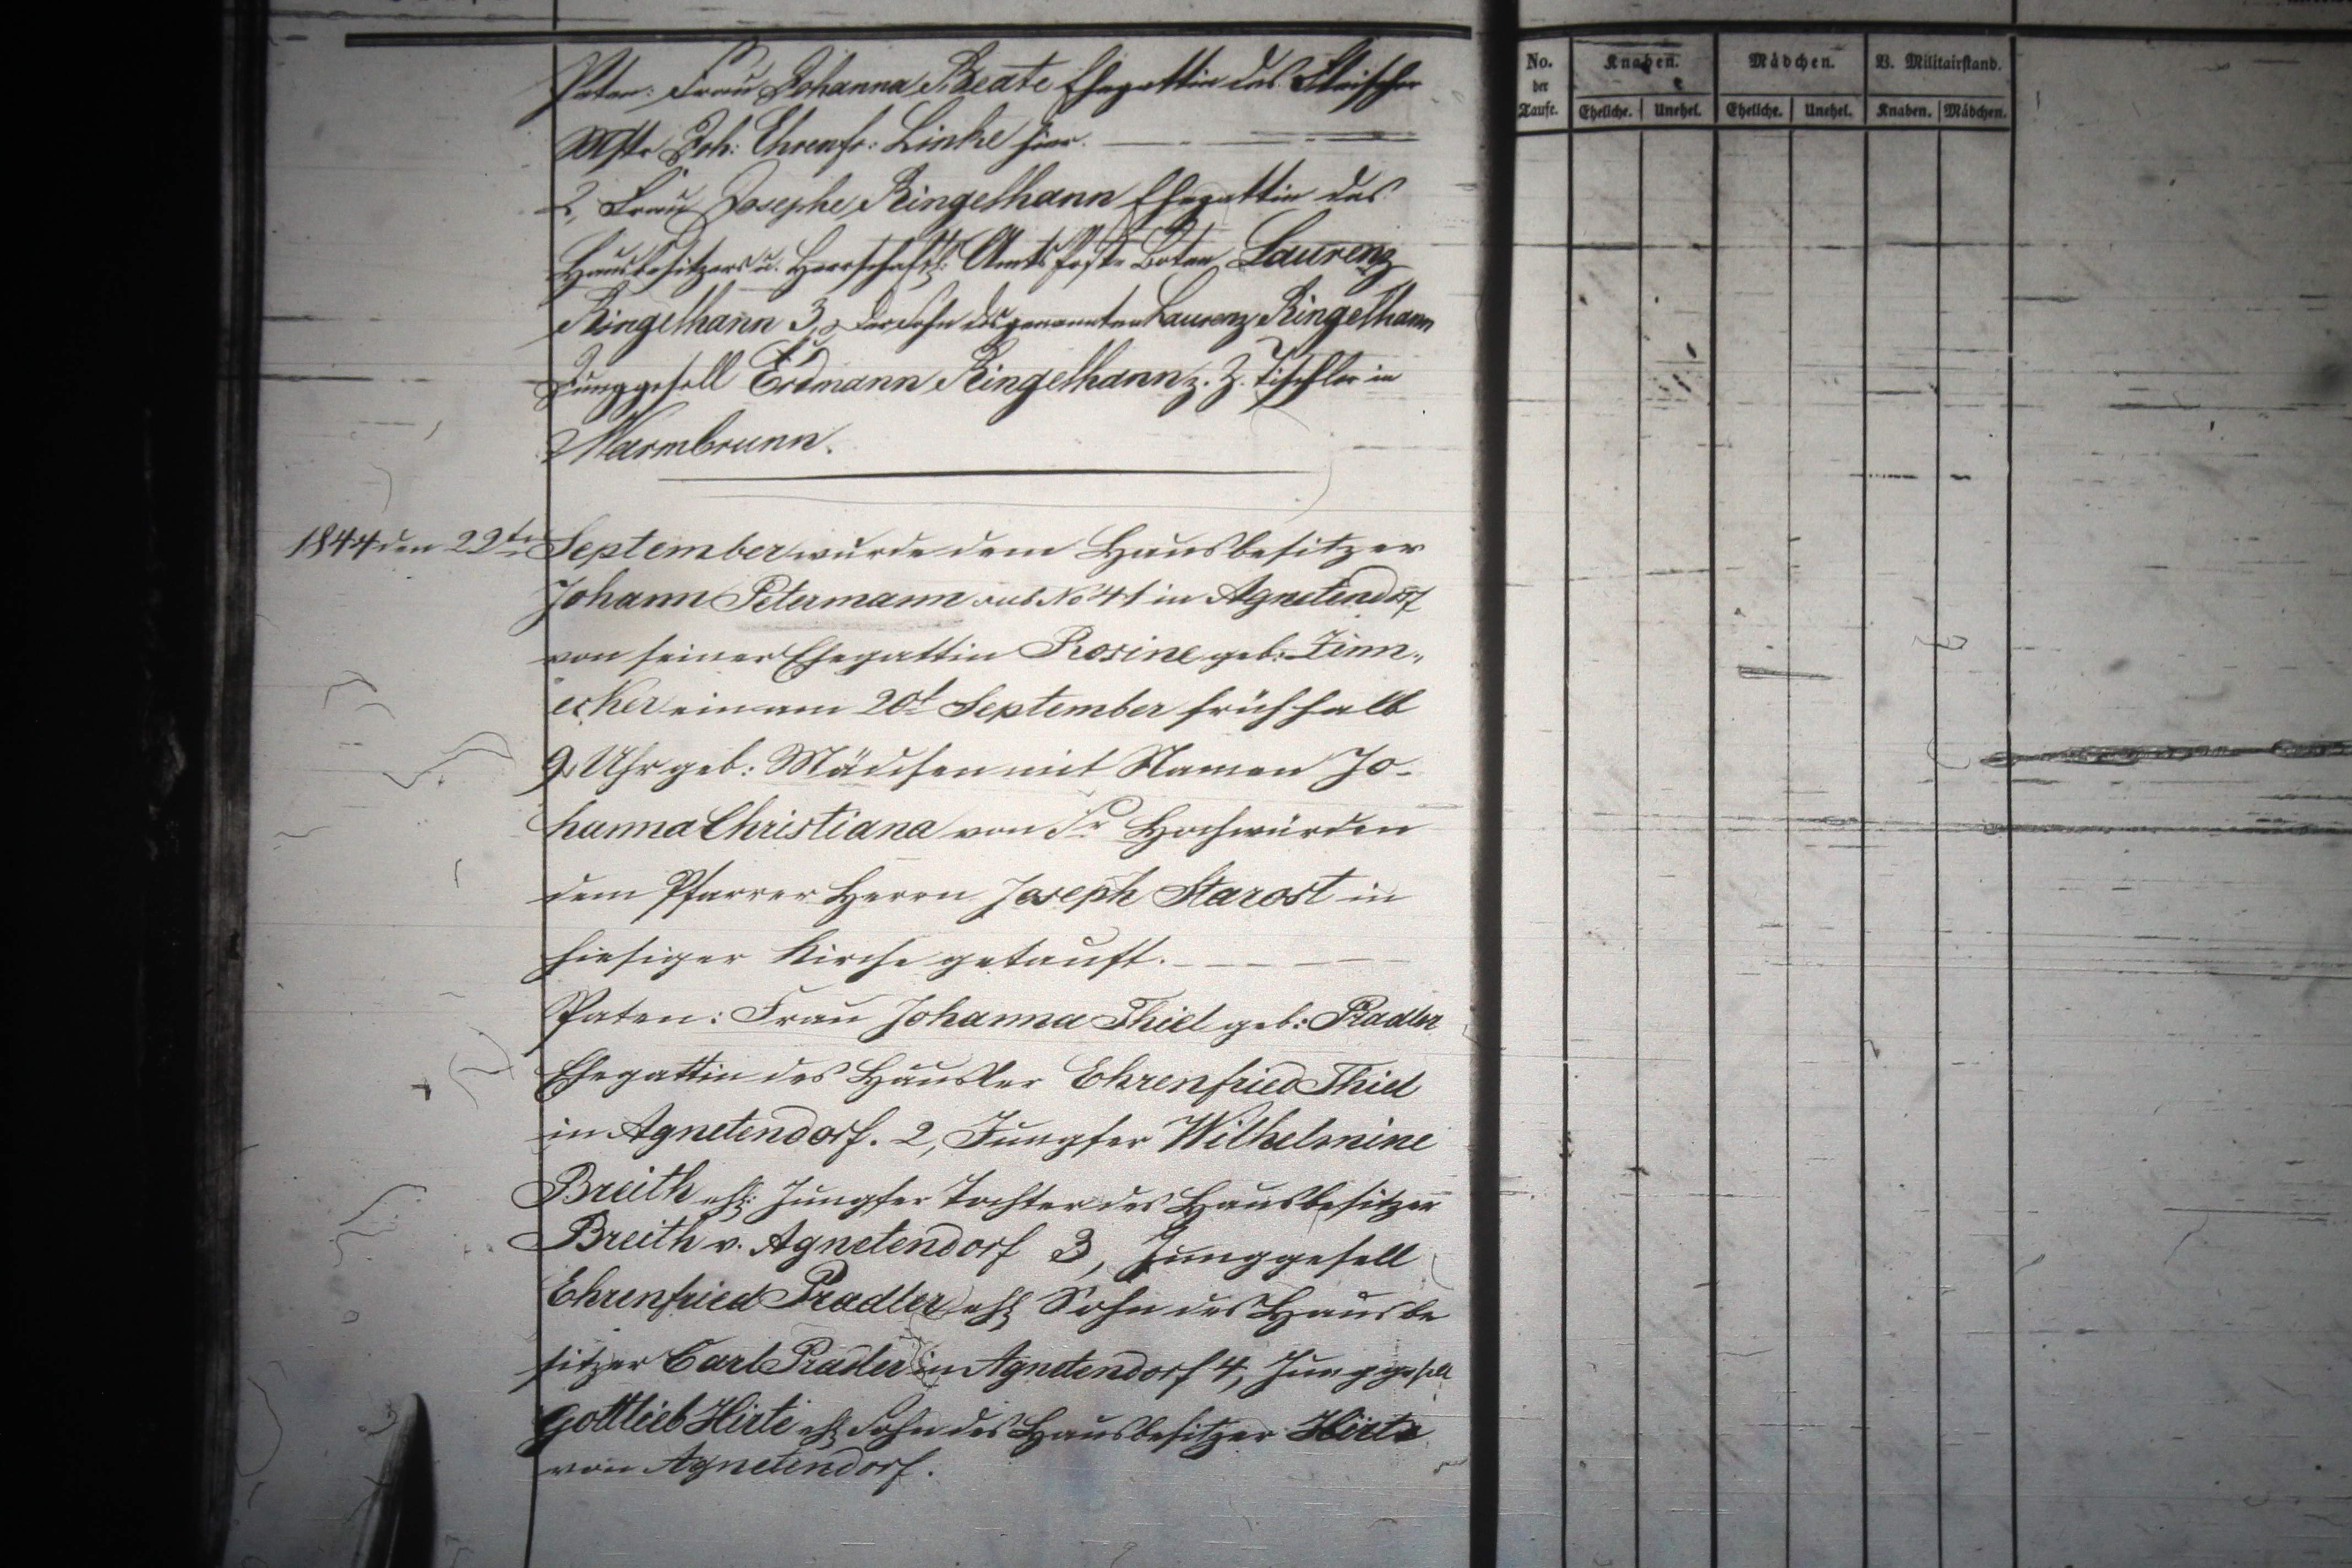 Paten: Frau Johanna Beate Ehegattin des Fleischer
Mstr Joh: Ehrenfr: Linke hier.
2, Frau Josephe Ringelhann Ehegattin des
Hausbesitzers u. Herrschaftl: Amts Boten Laurenz
Ringelhann 3, der Sohn des genannten Laurenz Ringelhann
Junggesell Erdmann Ringelhann z. Z. Tischler in
Warmbrunn.
1844 den 22t September wurde dem Hausbesitzer
Johann Petermann sub No 41 in Agnetendorf
von seiner Ehegattin Rosine geb: Zinn„
ecker ein am 20t September früh halb
9 Uhr geb: Mädchen mit Namen Jo-
hanna Christiana von Sr Hochwürden
dem Pfarrer Herrn Joseph Starost in
hiesiger Kirche getauft.
Paten: Frau Johanna Thiel geb: Pradler
Ehegattin des Häusler Ehrenfried Thiel
in Agnetendorf. 2, Jungfer Wilhelmine
Breith ehl: Jungfer Tochter des Hausbesitzer
Breith v. Agnetendorf 3, Junggesell
Ehrenfried Pradler ehl Sohn des Hausbe
sitzer Carl Pradler in Agnetendorf 4, Junggesell
Gottlieb Hirte ehl Sohn des Hausbesitzer Hirte
von Agnetendorf.
No. der Taufe.
Knaben.
Mädchen.
B. Militairstand.
Eheliche.
Unehel.
Eheliche.
Unehel.
Knaben.
Mädchen.